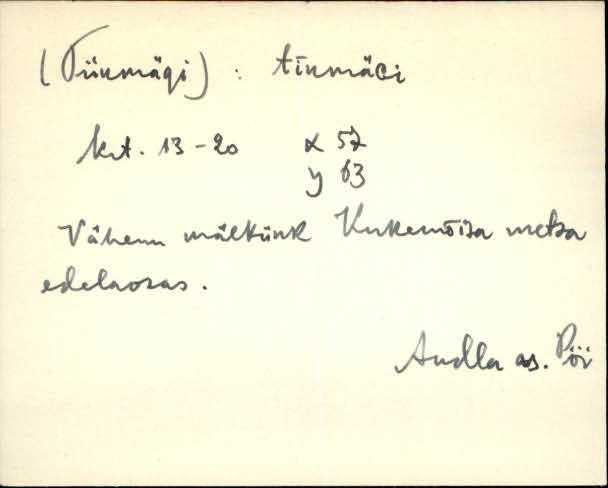 (Tiinmägi) : tīnmäGi
krt. 13-20 x 57
y 63
Vähem mäekünk Kukemõisa metsa
edelaosas.
Audla as. Pöi